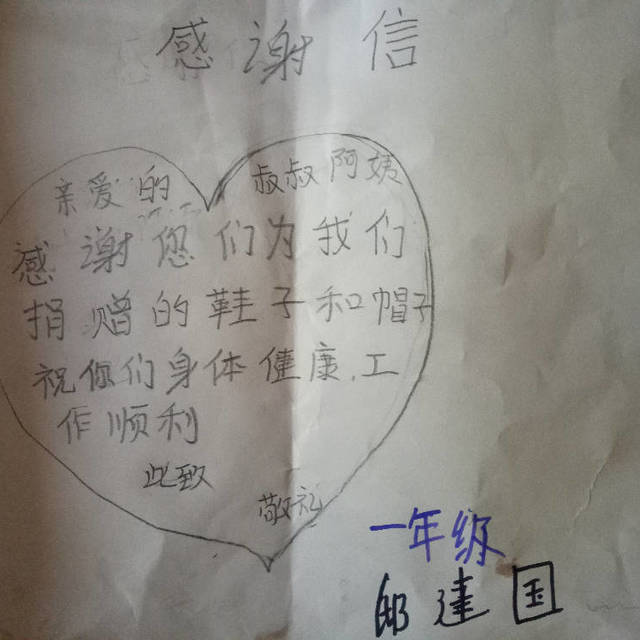 感谢信
亲爱的 叔叔阿姨
感谢您们为我们
捐赠的鞋子和帽子
祝您们身体健康,工
作顺利
此致
敬礼
一年级
邱建国